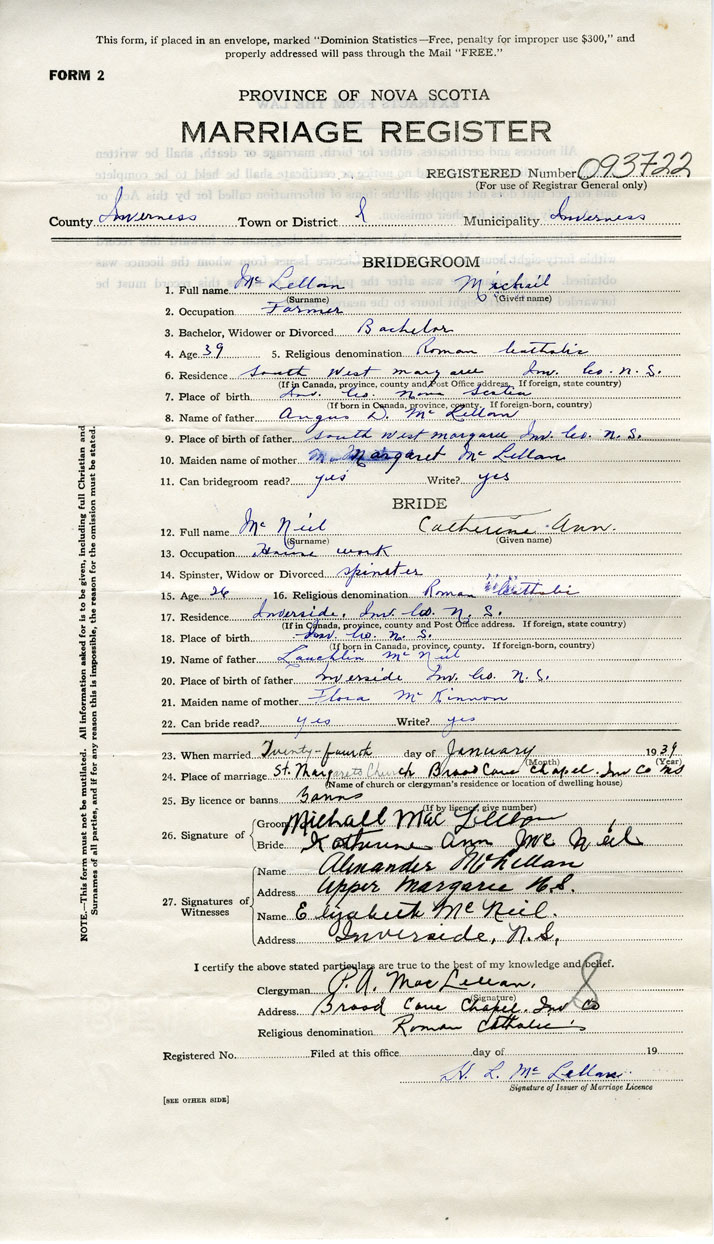 This form, if placed in an envelope, marked "Dominion Statistics—Free, penalty for improper use $300," and
properly addressed will pass through the Mail "FREE."
FORM 2
PROVINCE OF NOVA SCOTIA
MARRIAGE REGISTER
REGISTERED Number 093722
(For use of Registrar General only)
County Inverness Town or District Municipality Inverness
BRIDEGROOM
1. Full name Mc Lellan Michail
(Surname) (Given name)
2. Occupation Farmer
3. Bachelor, Widower or Divorced Bachelor
4. Age 39 5. Religious denomination Roman Catholic
6. Residence South West margaree Inv. Co. N. S.
(If in Canada, province, county and Post Office address. If foreign, state country)
7. Place of birth Inv. Co. Nova Scotia
(If born in Canada, province, county. If foreign-born, country)
8. Name of father Angus D. Mc Lellan
9. Place of birth of father South West margaree Inv. Co. N. S.
10. Maiden name of mother Margaret Mc Lellan
11. Can bridegroom read? yes Write? yes
BRIDE
12. Full name Mc Neil Catherine Ann.
(Surname) (Given name)
13. Occupation House work
14. Spinster, Widow or Divorced spinster
15. Age 26 16. Religious denomination Roman Catholic
17. Residence Inverside, Inv. Co. N. S.
(If in Canada, province, county and Post Office address. If foreign, state country)
18. Place of birth Inv. Co. N. S.
(If born in Canada, province, county. If foreign-born, country)
19. Name of father Lauchlin Mc Neil
20. Place of birth of father Inverside Inv. Co. N. S.
21. Maiden name of mother Flora Mc Kinnon
22. Can bride read? yes Write? yes
23. When married Twenty-fourth day of January 1939
(Month) (Year)
24. Place of marriage St. Margarets Church Broad Cove Chapel. Inv Co NS
(Name of church or clergyman's residence or location of dwelling house)
25. By licence or banns Banns
(If by licence, give number)
26. Signature of { Groom Michall Mac Lellan
Bride Katherine Ann Mc Neil
27. Signatures of Witnesses { Name Alexander McLellan
Address Upper Margaree N.S.
Name Elizabeth McNeil.
Address Inverside, N.S,
I certify the above stated particulars are true to the best of my knowledge and belief.
Clergyman P. A. MacLellan,
(Signature)
Address Broad Cove Chapel. Inv Co
Religious denomination Roman Catholic
Registered No. Filed at this office day of 19
H. L. Mc Lellan
Signature of Issuer of Marriage Licence
[SEE OTHER SIDE]
NOTE.—This form must not be mutilated. All information asked for is to be given, including full Christian and
Surnames of all parties, and if for any reason this is impossible, the reason for the omission must be stated.